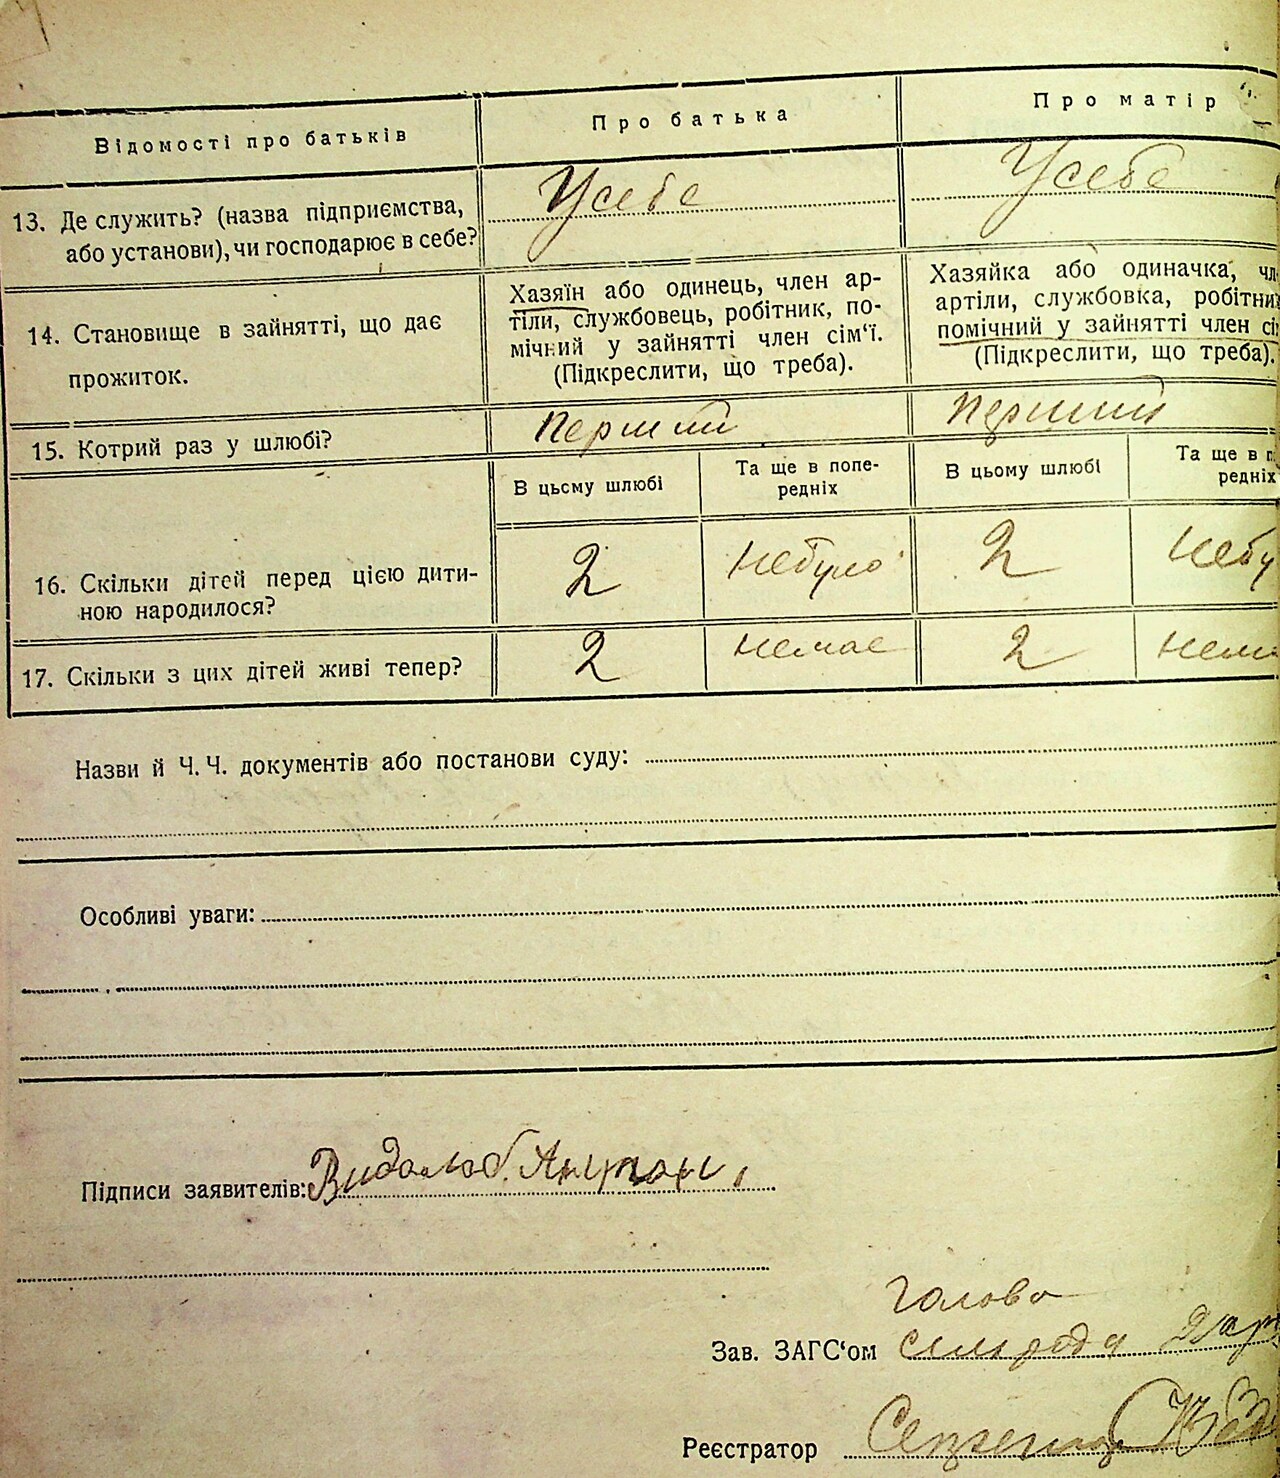 Відомості про батьків
Про батька
Про матір
13. Де служить? (назва підприємства,
або установи), чи господарює в себе?
У себе
У себе
14. Становище в зайнятті, що дає
прожиток.
Хазяїн або одинець, член ар-
тіли, службовець, робітник, по-
мічний у зайнятті член сім‘ї.
(Підкреслити, що треба).
Хазяйка або одиначка, чл
артіли, службовка, робітни
помічний у зайнятті член сі
(Підкреслити, що треба).
15. Котрий раз у шлюбі?
Перший
Перший
16. Скільки дітей перед цією дити-
ною народилося?
В цьому шлюбі
Та ще в попе-
редніх
В цьому шлюбі
Та ще в п
редніх
2
Небуло
2
Небу
17. Скільки з цих дітей живі тепер?
2
немає
2
нема
Назви й Ч. Ч. документів або постанови суду:
Особливі уваги:
Підписи заявителів:
Голова
Зав. ЗАГС‘ом сельради
Реєстратор